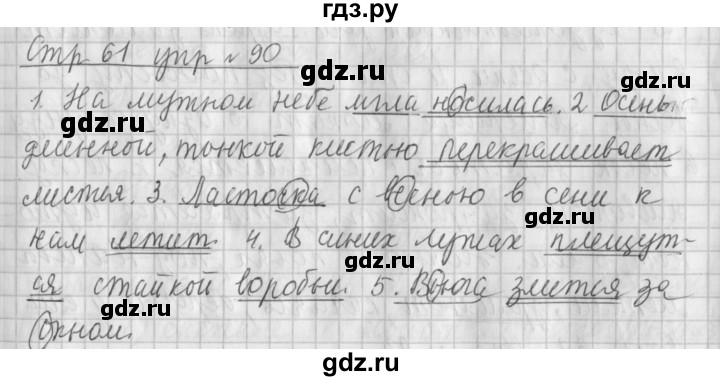 гдз.ру
Стр 61 упр № 90
gdz.ru
1. На мутном небе мгла носилась. 2 Осень
gdz.ru
длинной, тонкой кистью перекрашивает
gdz.ru
листья. 3. Ласточка с весною в сени к
gdz.ru
нам летит. 4. В синих лужах плещут-
gdz.ru
ся стайкой воробьи. 5. Вьюга злится за
gdz.ru
окном.
gdz.ru